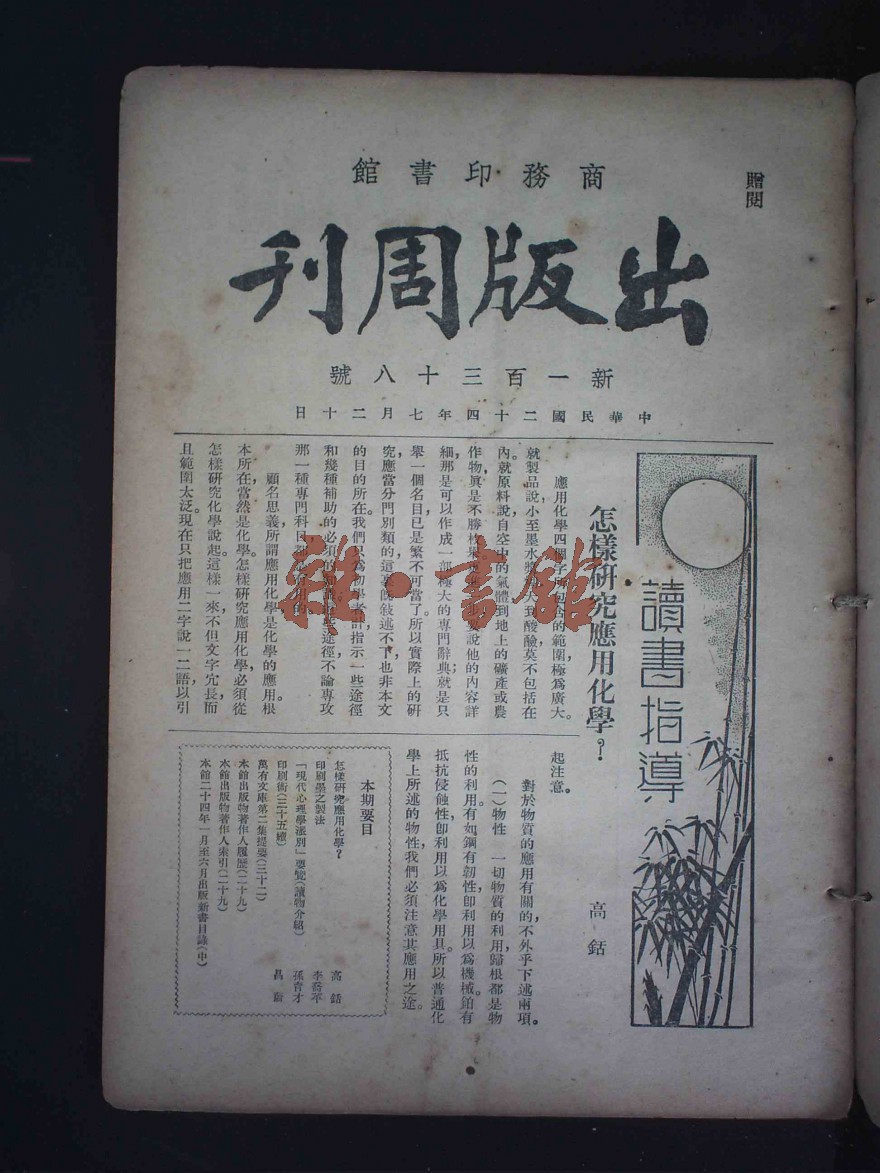 贈閱
商務印書館
出版周刊
新一百三十八號
中華民國二十四年七月二十日
讀書指導
怎樣研究應用化學？
高銛
應用化學四個字所包含的範圍，極為廣大。
就製品說，小至墨水漿糊，大到酸鹼，莫不包括在
內。就原料說，自空中的氣體到地上的礦產或農
作物，真是不勝枚舉。要說他的內容詳
細，那是可以作成一部極大的專門辭典；就是只
舉一個名目，已是繁不可當了。所以實際上的研
究，應當分門別類的，這裏既敍述不下，也非本文
的目的所在。我們只為初學者計，指示一些途徑
和幾種補助的必須的途徑，不論專攻
那一種專門科目，都是有用的。
顧名思義，所謂應用化學，是化學的應用。根
本所在，當然是化學。怎樣研究應用化學，必須從
怎樣研究化學說起。這樣一來，不但文字冗長，而
且範圍太泛。現在只把應用二字說一二語，以引
起注意。
對於物質的應用有關的，不外乎下述兩項。
（一）物性　一切物質的利用，歸根都是物
性的利用。有如鋼有韌性，即利用以為機械；鉑有
抵抗侵蝕性，即利用以為化學用具。所以普通化
學上所述的物性，我們必須注意其應用之途。
本期要目
怎樣研究應用化學？　高銛
印刷墨之製法　李喬苹
「現代心理學派別」要覽（讀物介紹）　孫青才
印刷術（三十五續）　昌
萬有文庫第二集提要（三十二）
本館出版物著作人履歷（二十九）
本館出版物著作人索引（二十九）
本館二十四年一月至六月出版新書目錄（中）
雜·書館